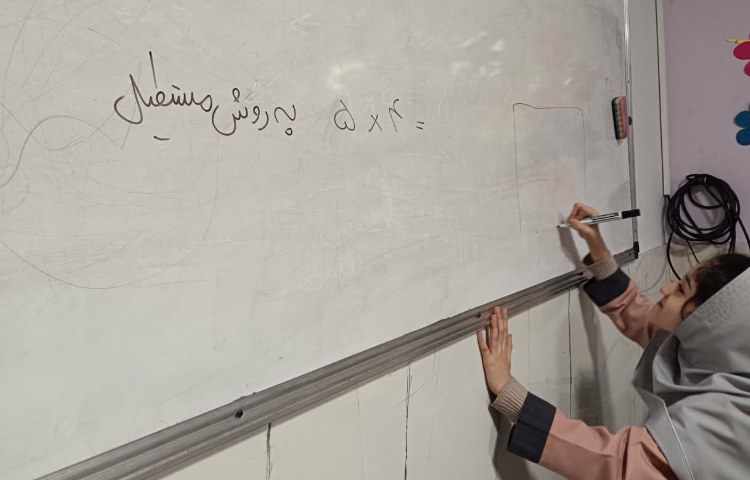 ۵ × ۴ = به روش مستطیل